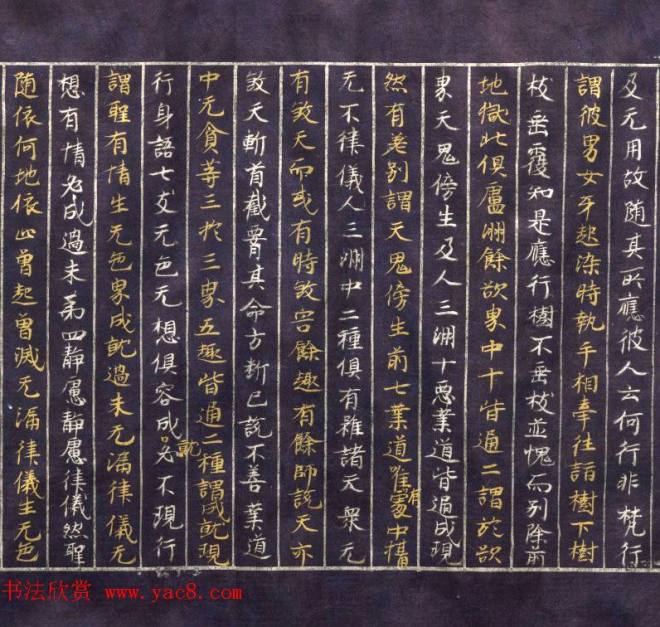 及无用故随其所應彼人云何行非梵行
謂彼男女牙起染時執手相牽往詣樹下樹
枝垂覆知是應行樹不垂枝並愧而别除前
地獄北俱盧洲餘欲界中十皆通二謂於欲
界天鬼傍生及人三洲十惡業道皆通成現
然有差别謂天鬼傍生前七業道唯有處中攝
无不律儀人三洲中二種俱有雖諸天衆无
有煞天而或有時煞害餘趣有餘師説天亦
煞天斬首截腰其命方断已説不善業道
中无貪等三於三界五趣皆通二種謂成就現
行身語七支无色无想俱容成就必不現行
謂聖有情生无色界成就過未无漏律儀无
想有情必成過未第四静慮静慮律儀然聖
随依何地依止曾起曾滅无漏律儀生无色
书法欣赏 www.yac8.com